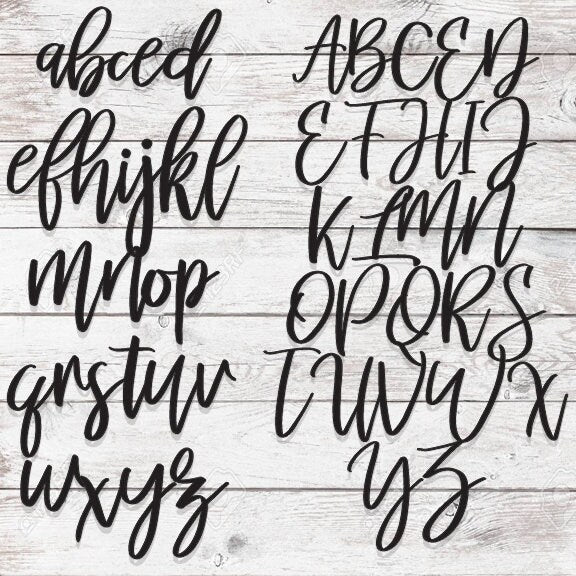 abced
efhijkl
mnop
qrstuv
wxyz
ABCED
EFHIJ
KLMN
OPQRS
TUWVX
YZ